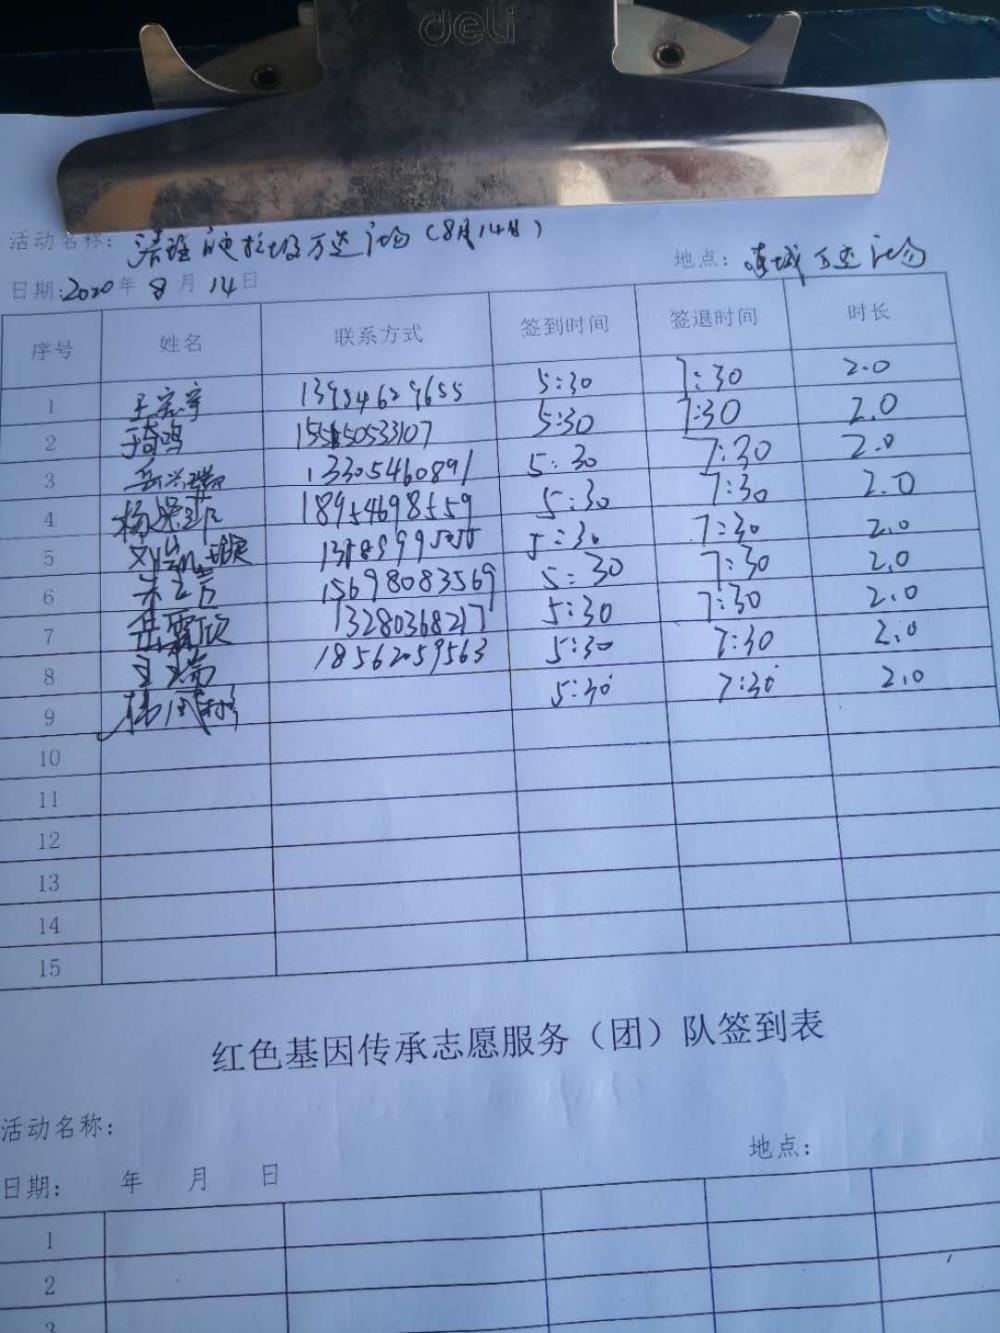 deli
活动名称: 万达广场(8月14日)
日期:2020年8月14日 地点: 东城万达广场
序号 姓名 联系方式 签到时间 签退时间 时长
1 王宏宇 13954629655 5:30 7:30 2.0
2 5:30 7:30 2.0
3 13305460891 5:30 7:30 2.0
4 18954698559 5:30 7:30 2.0
5 5:30 7:30 2.0
6 15698083569 5:30 7:30 2.0
7 岳霜欣 13280368217 5:30 7:30 2.0
8 王瑞 18562059563 5:30 7:30 2.0
9 5:30 7:30 2.0
10
11
12
13
14
15
红色基因传承志愿服务(团)队签到表
活动名称:
日期: 年 月 日 地点:
1
2
3